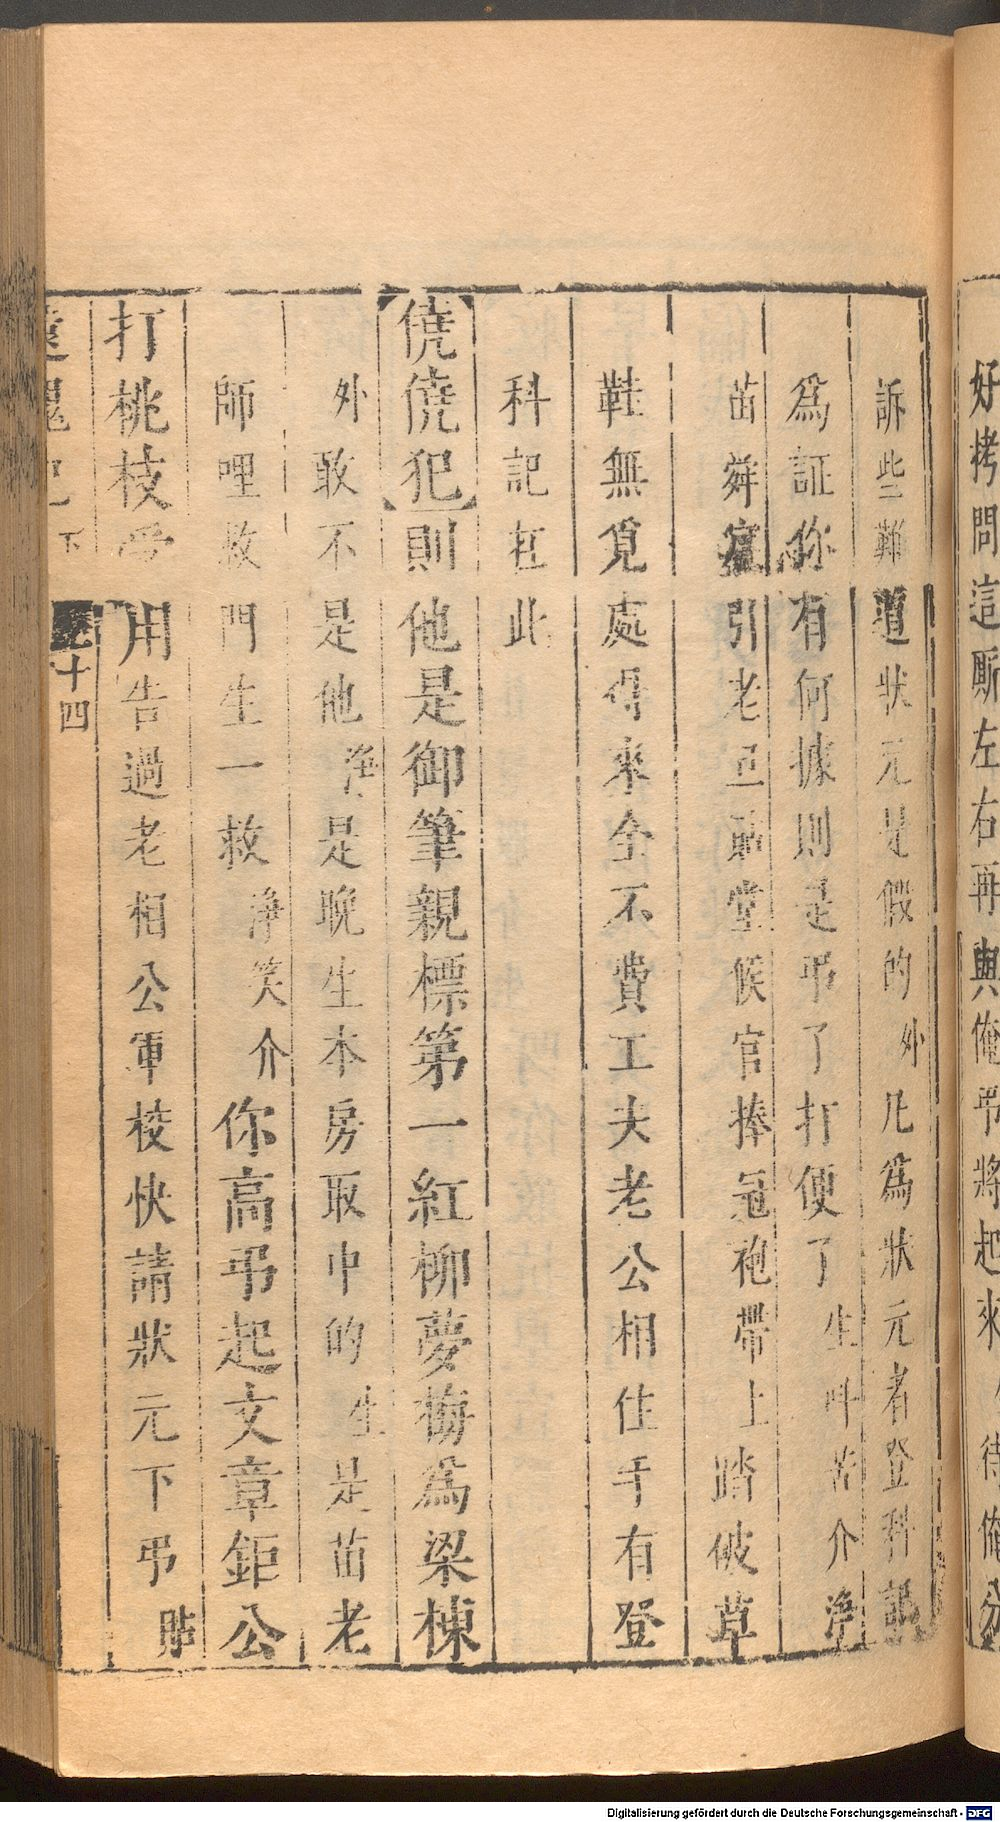 好拷問這厮左右再與俺吊將起來 待俺分
訴些難道狀元是假的外凡為狀元者登科記
為証你有何據則是吊了打便了生呌苦介淨
苗舜賓引老旦貼堂候官捧冠袍帶上踏破草
鞋無覓處得來全不費工夫老公相住手有登
科記在此
【僥僥犯】則他是御筆親標第一紅柳夢梅為梁棟
外敢不是他淨是晚生本房取中的生是苗老
師哩救門生一救淨笑介你高吊起文章鉅公
打桃枝受用告過老相公軍校快請狀元下吊貼
還魂記 下 十四
Digitalisierung gefördert durch die Deutsche Forschungsgemeinschaft - DFG